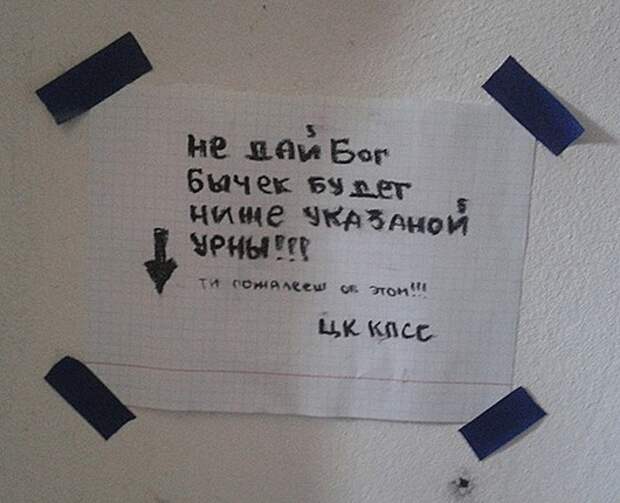 не дай Бог
бычек будет
ниже указаной
урны!!!
ти пожалееш об этом!!!
ЦК КПСС